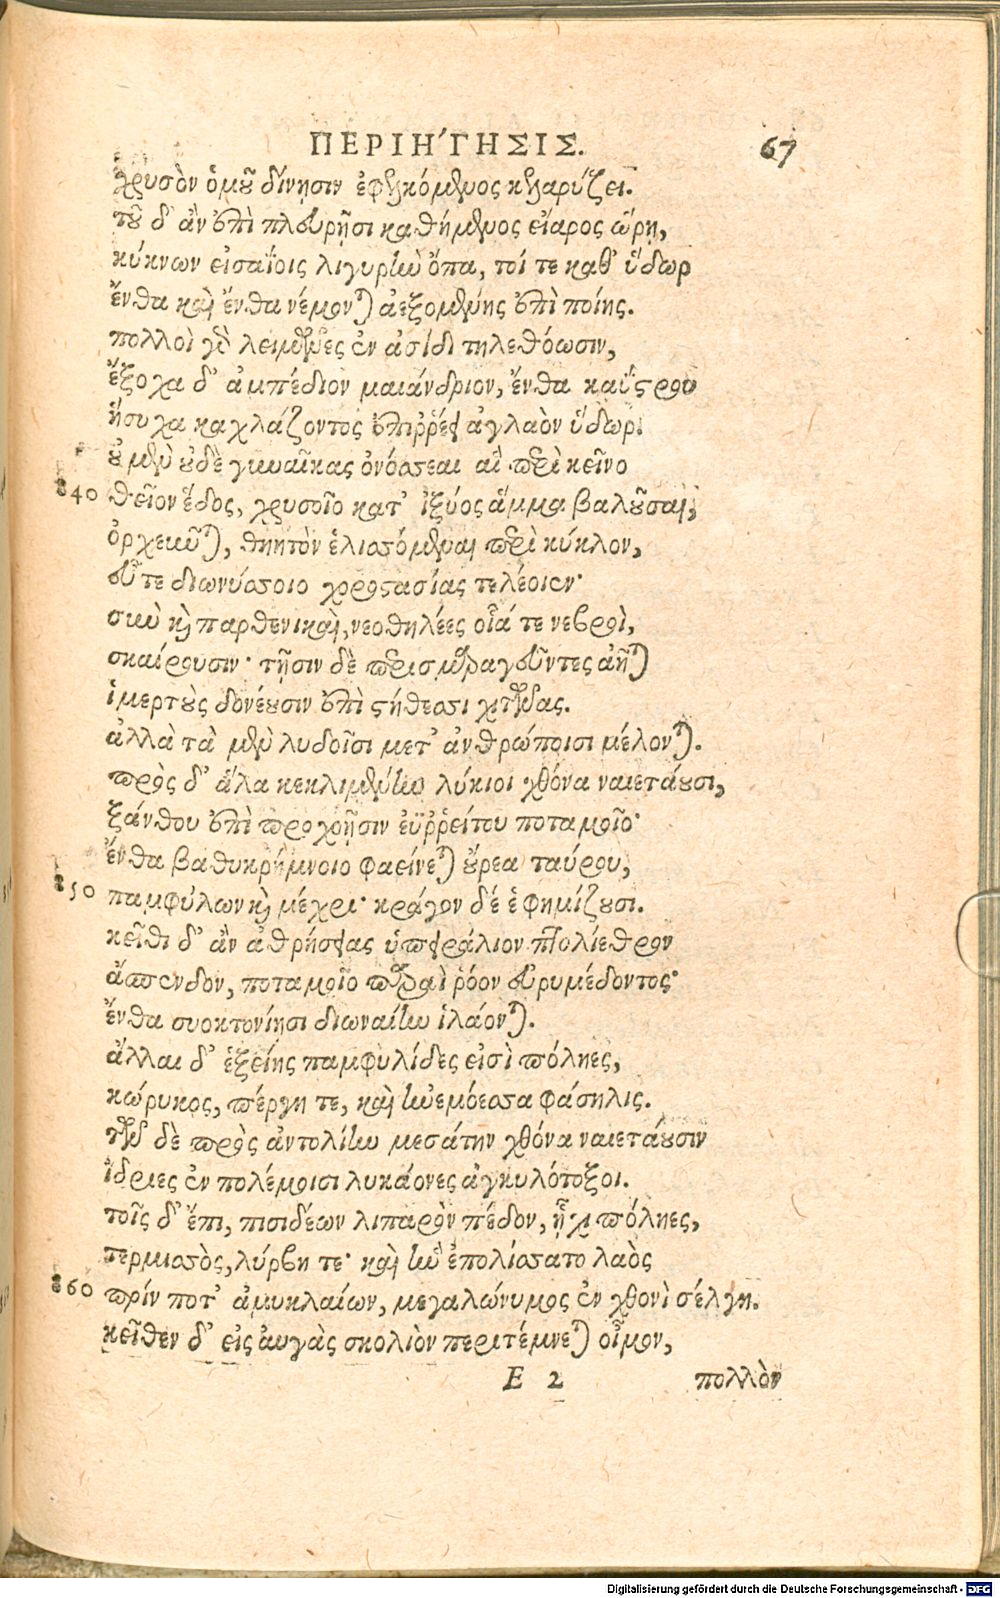 ΠΕΡΙΗΓΗΣΙΣ. 67
χρυσὸν ὁμοῦ δίνῃσιν ἐφελκόμενος κελαρύζει.
τοῦ δ' ἂν ἐπὶ πλευρῇσι καθήμενος εἴαρος ὥρῃ,
κύκνων εἰσαΐοις λιγυρὴν ὄπα, τοί τε καθ' ὕδωρ
ἔνθα καὶ ἔνθα νέμονται ἀεξομένης ἐπὶ ποίης.
πολλοὶ γὰρ λειμῶνες ἐν ἀσίδι τηλεθόωσιν,
ἔξοχα δ' ἀμπέδιον μαιάνδριον, ἔνθα καΰστρου
ἥσυχα καχλάζοντος ἐπιῤῥέει ἀγλαὸν ὕδωρ.
οὐ μὲν οὐδὲ γυναῖκας ὀνόσσεαι αἳ περὶ κεῖνο
840 θεῖον ἕδος, χρυσοῖο κατ' ἰξύος ἅμμα βαλοῦσαι,
ὀρχεῦνται, θηητὸν ἑλισσόμεναι περὶ κύκλον,
εὖτε διωνύσσοιο χοροστασίας τελέοιεν·
σὺν καὶ παρθενικαὶ, νεοθηλέες οἷά τε νεβροὶ,
σκαίρουσιν· τῇσιν δὲ περισμαραγεῦντες ἀῆται
ἱμερτοὺς δονέουσιν ἐπὶ στήθεσσι χιτῶνας.
ἀλλὰ τὰ μὲν λυδοῖσι μετ' ἀνθρώποισι μέλονται.
πρὸς δ' ἅλα κεκλιμένην λύκιοι χθόνα ναιετάουσι,
ξάνθου ἐπὶ προχοῇσιν ἐϋῤῥείτου ποταμοῖο·
ἔνθα βαθυκρήμνοιο φαείνεται οὔρεα ταύρου,
850 παμφύλων καὶ μέχρι· κράγον δέ ἑ φημίζουσι.
κεῖθι δ' ἂν ἀθρήσειας ὑπειράλιον πτολίεθρον
ἄσπενδον, ποταμοῖο παραὶ ῥόον εὐρυμέδοντος·
ἔνθα συοκτονίῃσι διωναίην ἱλάονται.
ἄλλαι δ' ἑξείης παμφυλίδες εἰσὶ πόληες,
κώρυκος, πέργη τε, καὶ ἠνεμόεσσα φάσηλις.
τῶν δὲ πρὸς ἀντολίην μεσάτην χθόνα ναιετάουσιν
ἴδριες ἐν πολέμοισι λυκάονες ἀγκυλότοξοι.
τοῖς δ' ἔπι, πισιδέων λιπαρὸν πέδον, ἧχι πόληες,
τερμισσὸς, λύρβη τε· καὶ ἣν ἐπολίσσατο λαὸς
860 πρίν ποτ' ἀμυκλαίων, μεγαλώνυμος ἐν χθονὶ σέλγη.
κεῖθεν δ' εἰς αὐγὰς σκολιὸν περιτέμνεται οἶμον,
E 2 πολλὸν
Digitalisierung gefördert durch die Deutsche Forschungsgemeinschaft - DFG